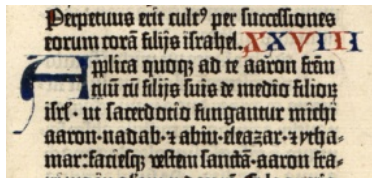 Perpetuus erit cult⁹ per successiones
eorum corā filijs israhel. XXVIII
Applica quoq; ad te aaron frēm
tuū cū filijs suis de medio filioꝝ
isrl'· ut sacerdocio fungantur michi
aaron·nadab·⁊ abiu·eleazar·⁊ ytha-
mar: faciesq; vestem sanctā·aaron fra-